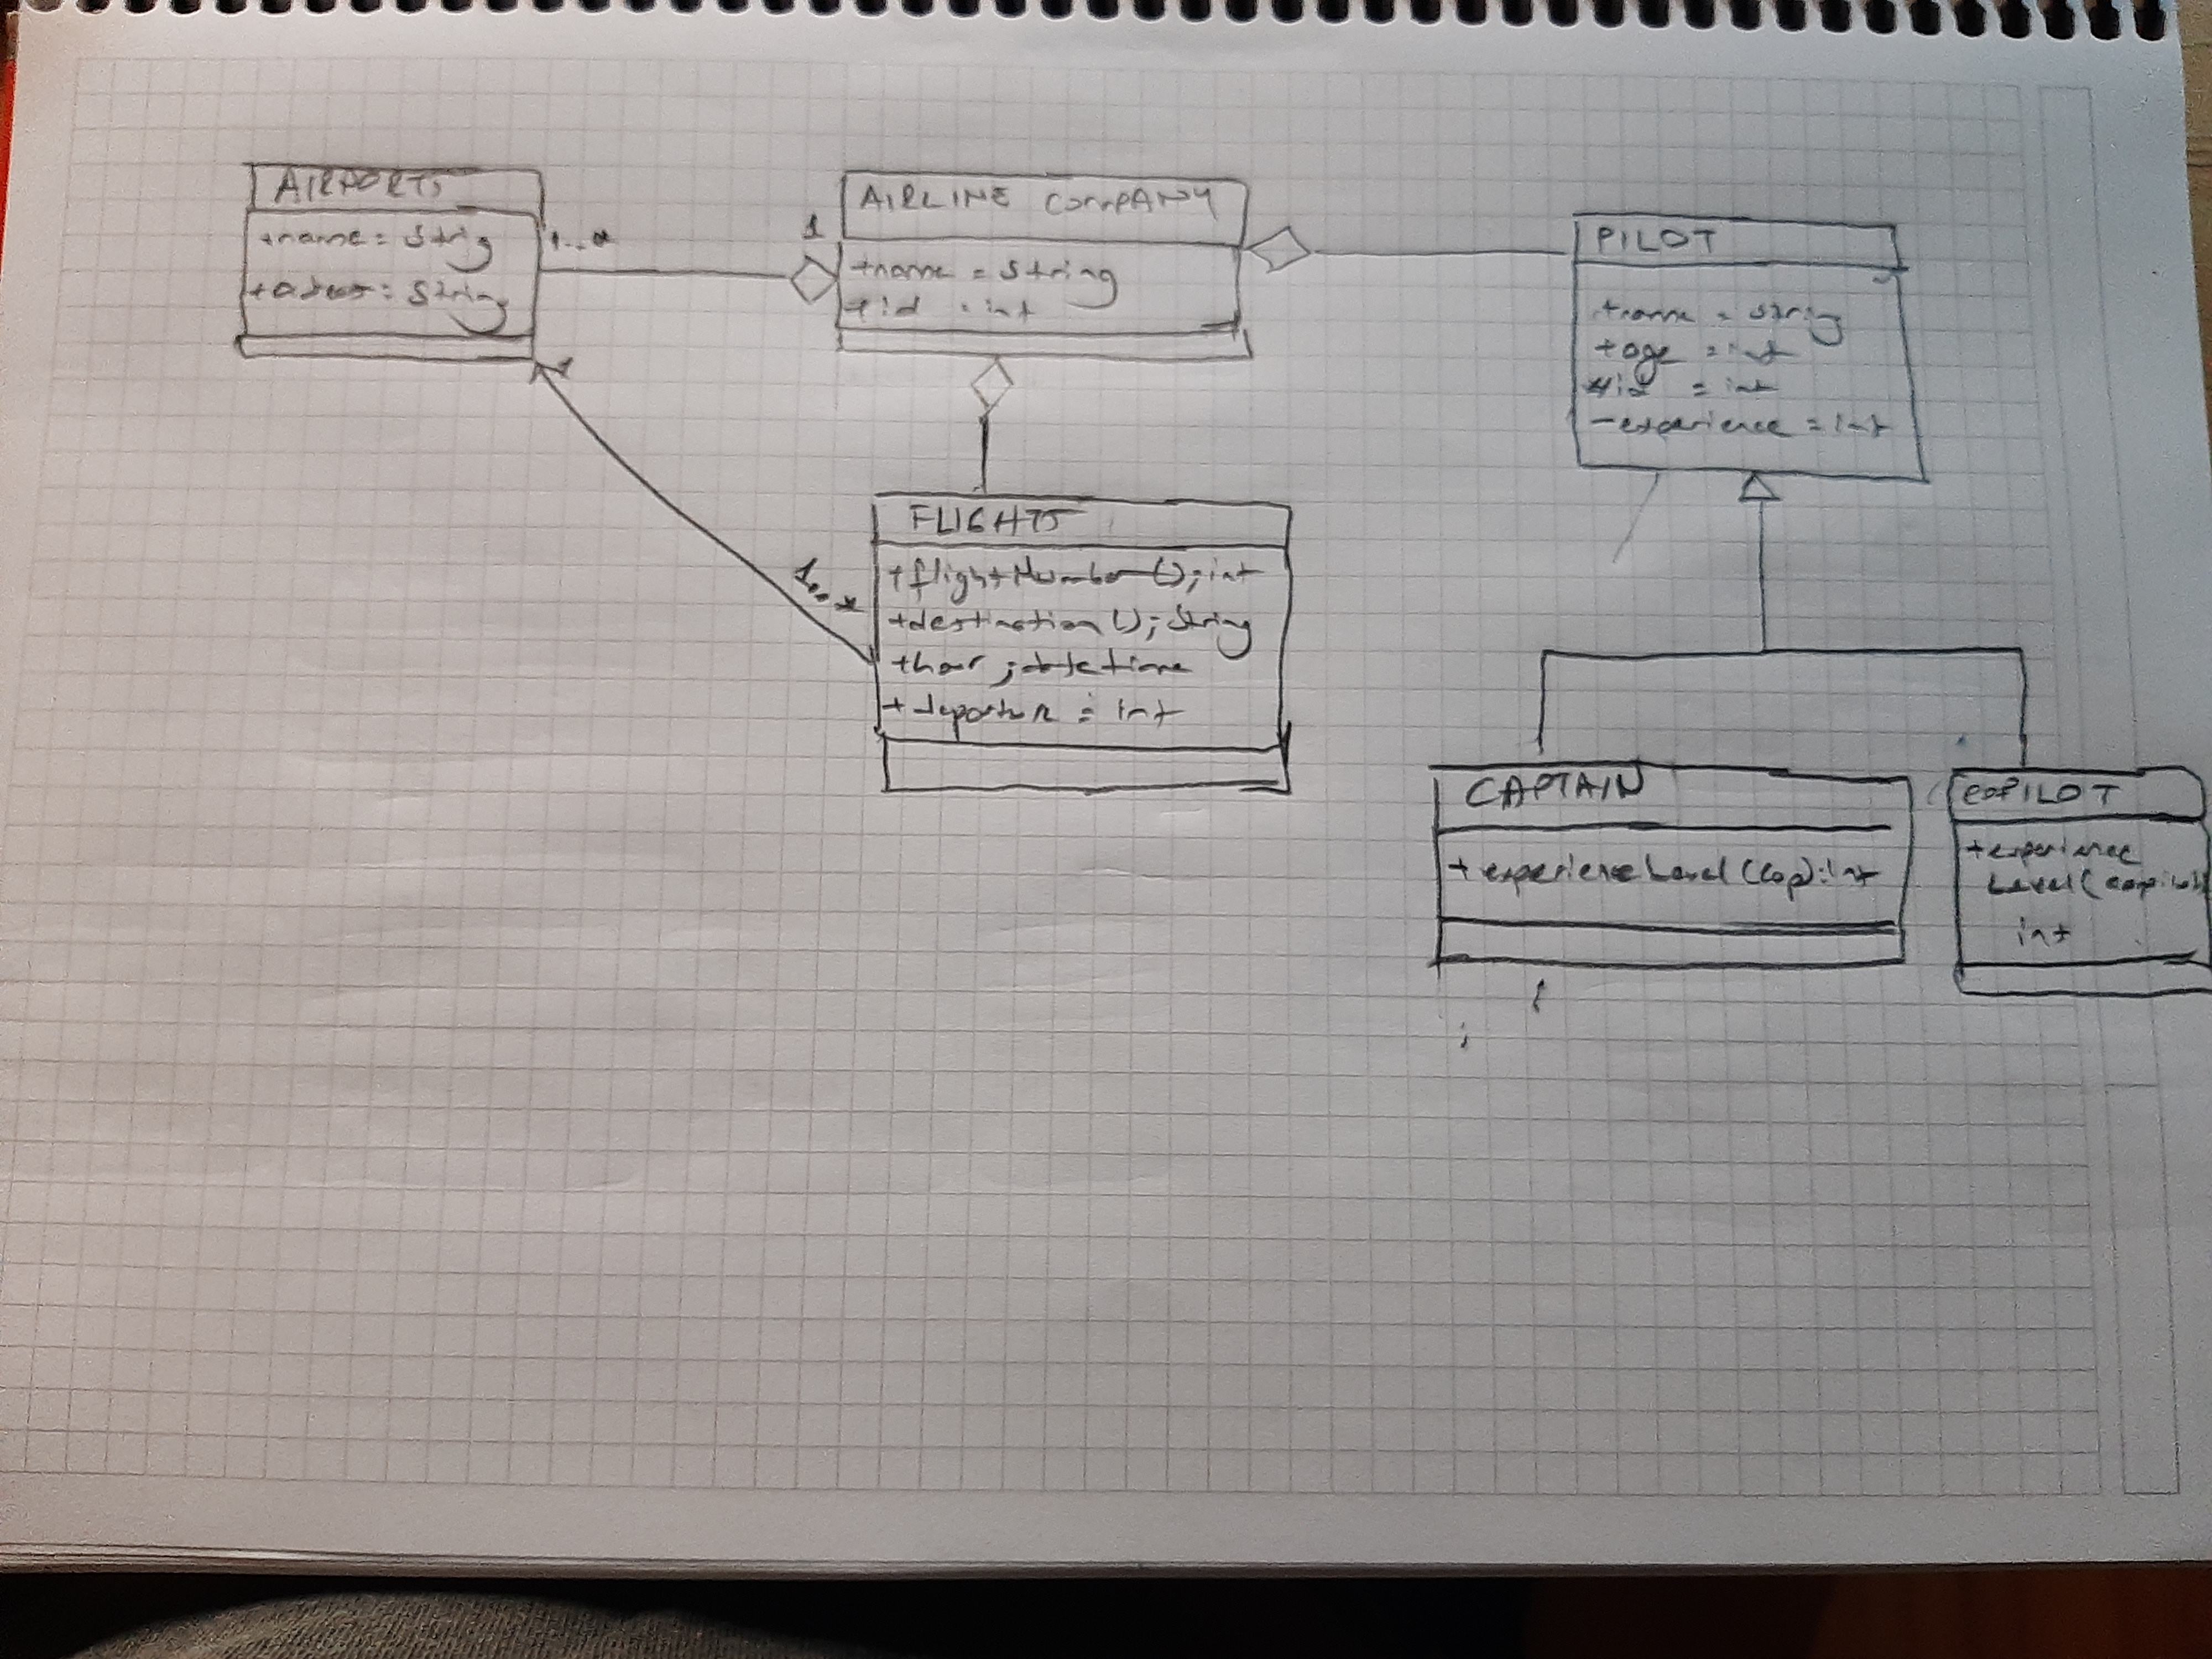 AIRPORTS
+name = Strig
+adress = String
1..*
1
AIRLINE COMPANY
+name = String
+id = int
PILOT
+name = String
+age = int
+id = int
-experience = int
1
1..*
FLIGHTS
+flightNumber(); int
+destination(); String
+hour ; datetime
+departure = int
CAPTAIN
+experienceLevel(Cop): int
COPILOT
+experience
Level(copilot)
int